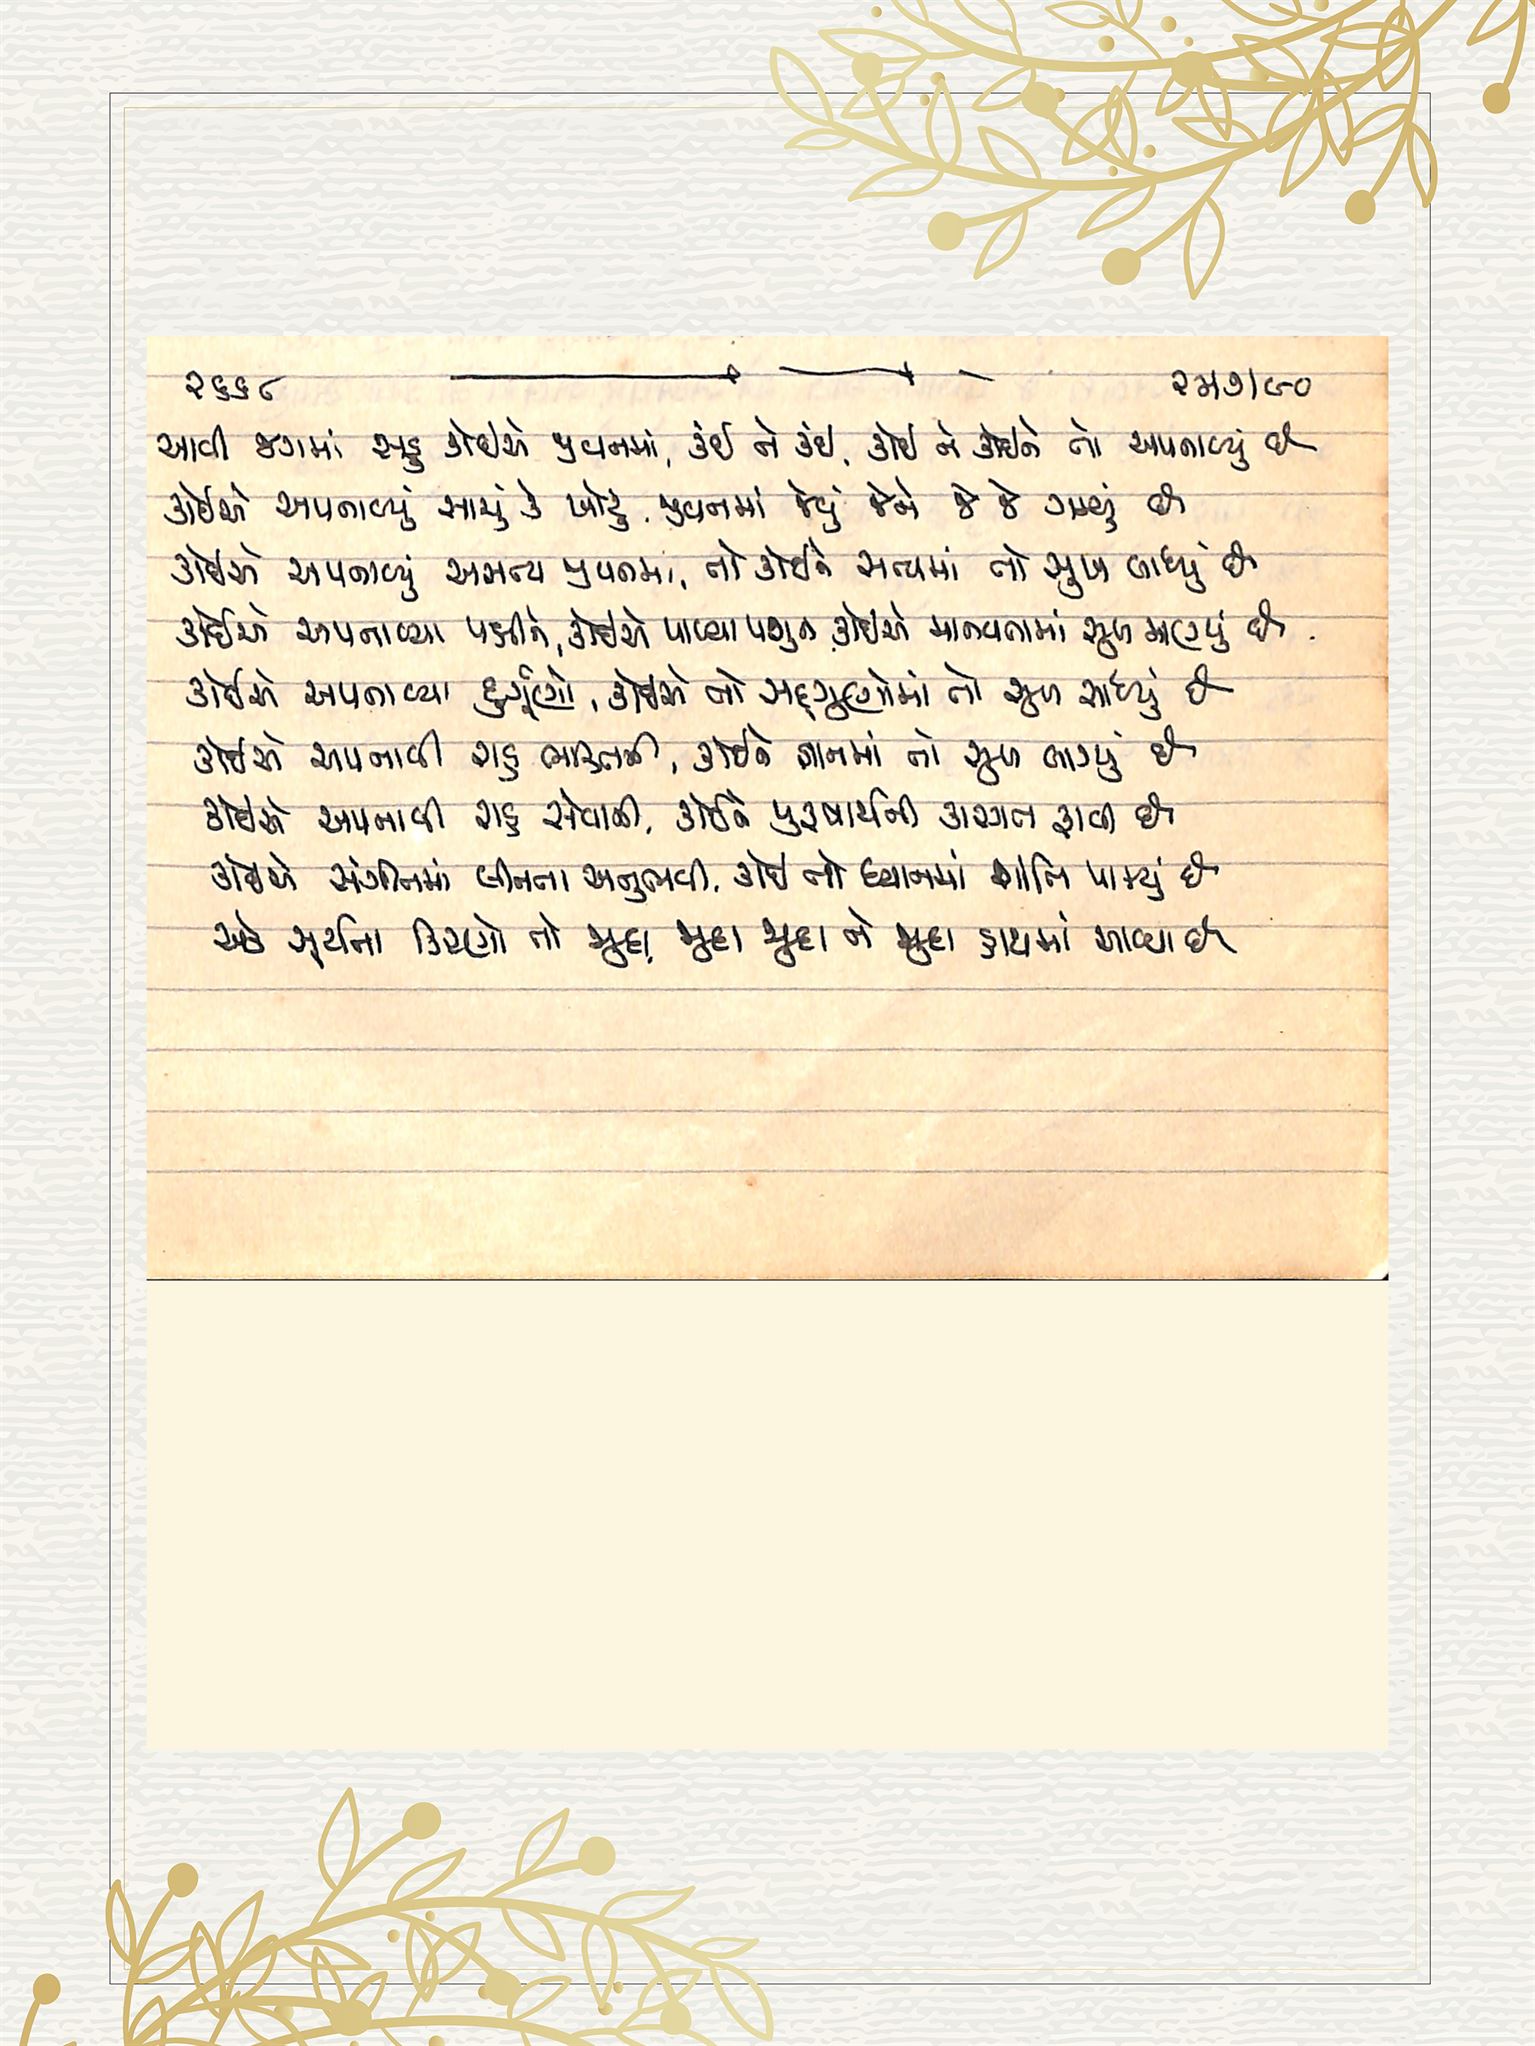 ૨૬૬૮
આવી જગમાં સહુ કોઈએ જીવનમાં, કંઈ ને કંઈ, કોઈ ને કોઈને તો અપનાવ્યું છે
કોઈએ અપનાવ્યું સાચું કે ખોટું. જીવનમાં જેવું જેને જે જે ગમ્યું છે
કોઈએ અપનાવ્યું અસત્ય જીવનમાં, તો કોઈને સત્યમાં તો સુખ લાધ્યું છે
કોઈએ અપનાવ્યા પક્ષીને, કોઈએ પાળ્યા પશુને કોઈએ માનવતામાં સુખ માણ્યું છે.
કોઈએ અપનાવ્યા દુર્ગુણો, કોઈએ તો સદ્ગુણોમાં તો સુખ સાધ્યું છે
કોઈએ અપનાવી રાહ ભક્તિની, કોઈને જ્ઞાનમાં તો સુખ લાગ્યું છે
કોઈએ અપનાવી રાહ સેવાની, કોઈને પુરુષાર્થની કારગત ફાવી છે
કોઈએ સંગીતમાં લીનતા અનુભવી. કોઈ તો ધ્યાનમાં શાંતિ પામ્યું છે
એક સૂર્યના કિરણો તો જુદા, જુદા જુદા ને જુદા હાથમાં આવ્યા છે